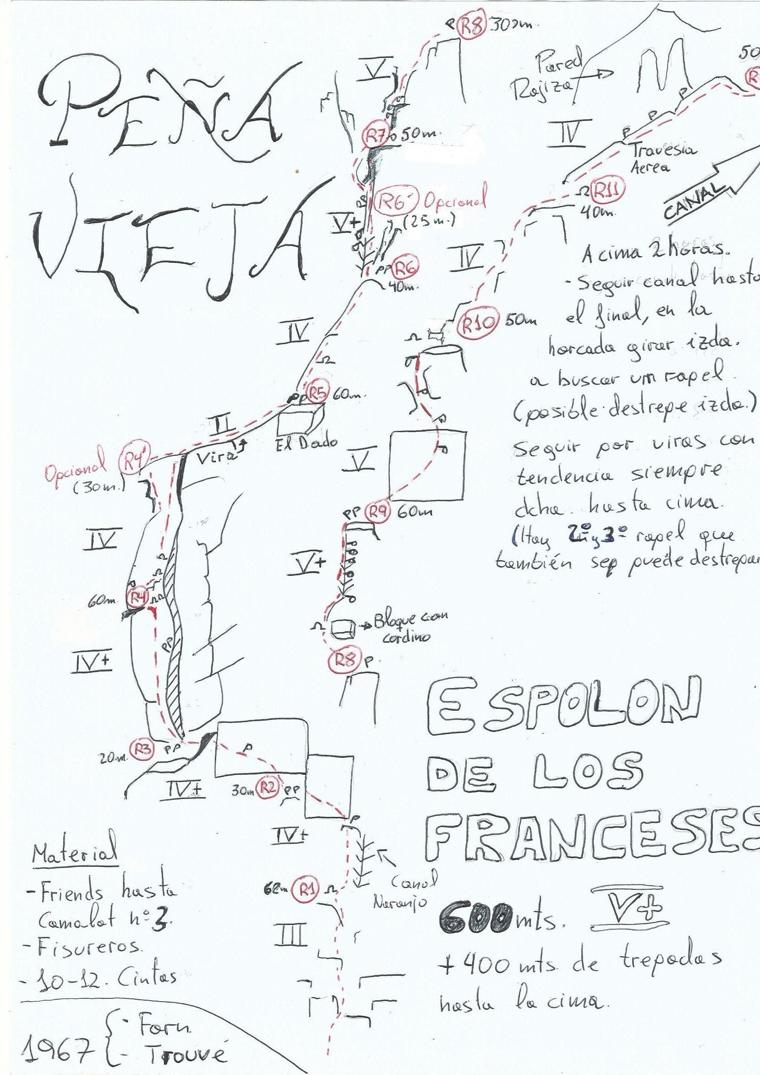 PEÑA
VIEJA
R8 30m.
V
R7 50m.
R6' Opcional
(25 m.)
V+
R6
40m.
IV
R5 60m.
El Dado
II
Vira
Opcional R4'
(30m.)
IV
60m R4
IV+
20m. R3
IV+
30m R2
IV+
Canal
Naranjo
62m R1
III
Pared
Rojiza
IV
Travesia
Aerea
50
CANAL
R11
40m.
IV
R10 50m
V
R9 60m
V+
Bloque con
cordino
R8
A cima 2 horas.
- Seguir canal hasta
el final, en la
horcada girar izda.
a buscar un rapel
(posible destrepe izda.)
Seguir por viras con
tendencia siempre
dcha. hasta cima.
(Hay 2º y 3º rapel que
también sep puede destrepar
ESPOLON
DE LOS
FRANCESES
600 mts. V+
+ 400 mts de trepadas
hasta la cima.
Material
- Friends hasta
Camalot nº 3.
- Fisureros.
- 10-12. Cintas
1967 - Forn
- Trouvé